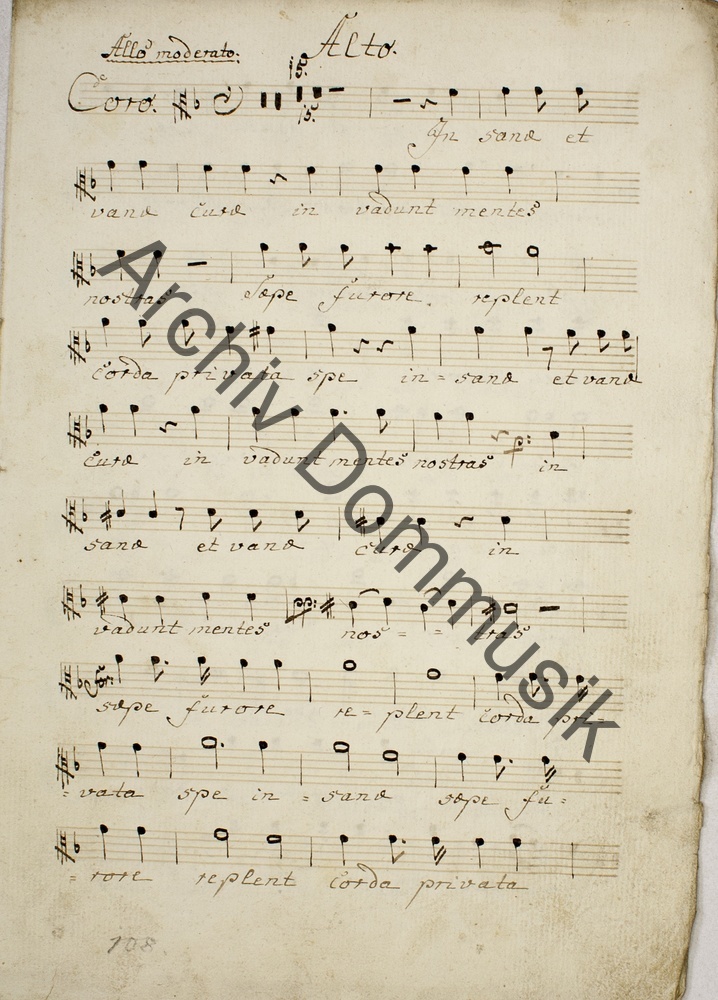 Alto.
Allo moderato.
15.
Coro.
15.
In sanæ et
vanæ curæ in vadunt mentes
nostras Sæpe furore replent
Corda privata spe in = sanæ et vanæ
curæ in vadunt mentes nostras in
sanæ et vanæ curæ in
vadunt mentes nos = = tras
sæpe furore re = plent corda pri =
= vata spe in = sanæ sæpe fu =
= rore replent Corda privata
108.
Archiv Dommusik